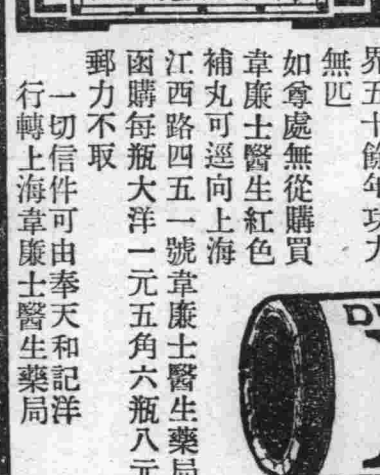 界五十餘年功力
無匹
如尊處無從購買
韋廉士醫生紅色
補丸可逕向上海
江西路四五一號韋廉士醫生藥局
函購每瓶大洋一元五角六瓶八元
郵力不取
一切信件可由奉天和記洋
行轉上海韋廉士醫生藥局